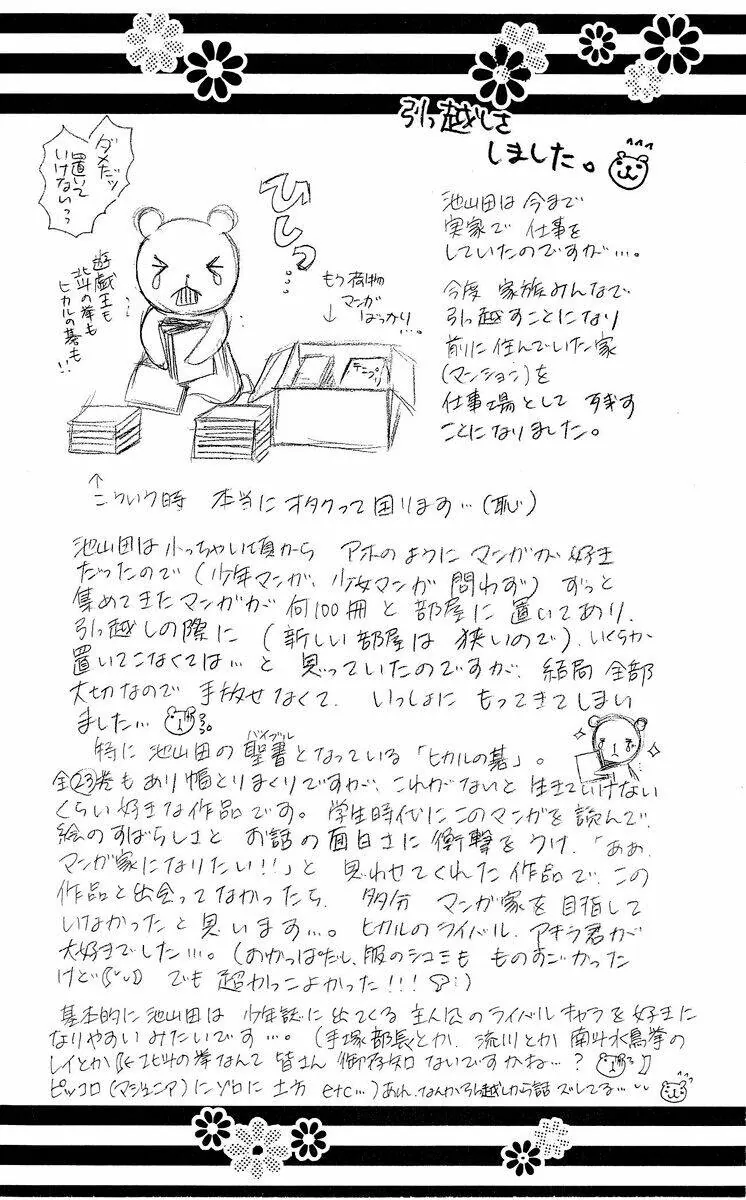 引っ越しを
しました。
ダメだッ
置いて
いけないっっ
ひしっ…
遊戯王も
北斗の拳も
ヒカルの碁も!!
もう荷物
マンガ
ばっかり…。
↓
テニプリ
池山田は今まで
実家で仕事を
していたのですが…。
今度 家族みんなで
引っ越すことになり
前に住んでいた家
(マンション)を
仕事場として
ことになりました。
↑
こういう時 本当にオタクって困ります…(恥)
池山田は小っちゃい頃から アホのように マンガが好き
だったので(少年マンガ、少女マンガ 問わず) ずっと
集めてきたマンガが 何100冊と 部屋に 置いてあり、
引っ越しの際に (新しい部屋は 狭いので)、いくらか
置いてこなくては…と 思っていたのですが、結局 全部
大切なので 手放せなくて、いっしょに もってきてしまい
ました…
特に 池山田の 聖書(バイブル)となっている「ヒカルの碁」。
全23巻もあり幅とりまくりですが、これがないと 生きていけない
くらい好きな作品です。学生時代にこのマンガを 読んで、
絵のすばらしさと お話の面白さに 衝撃をうけ、「ああ、
マンガ家になりたい!!」と 思わせてくれた作品で、この
作品と出会ってなかったら、多分 マンガ家を目指して
いなかったと思います…。ヒカルのライバル、アキラ君が
大好きでした…。(おかっぱだし、服のシュミも ものすごかった
けど でも 超かっこよかった!!!
基本的に池山田は 少年誌に出てくる 主人公のライバルキャラを好きに
なりやすいみたいです…。(手塚部長とか、流川とか 南斗水鳥拳の
レイとか 北斗の拳なんて 皆さん 御存知ないですかね…?
ピッコロ(マジュニア)にゾロに 土方 etc…)あれ、なんか引っ越しから話 ズレてる…